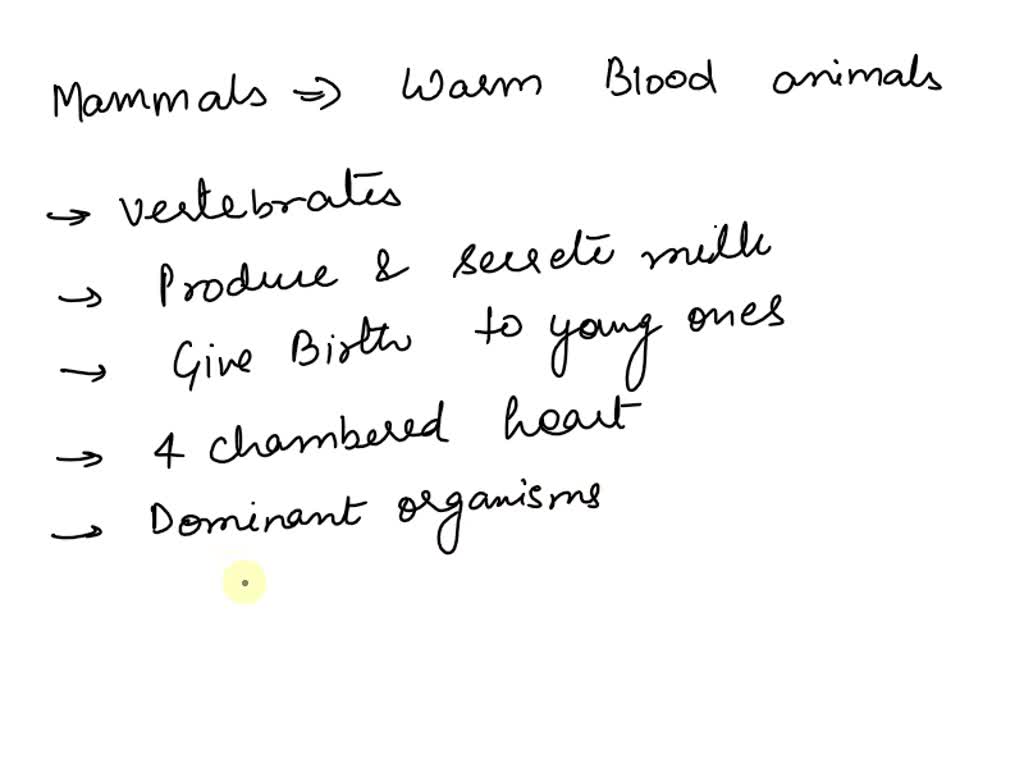 Mammals ⇒ Warm Blood animals
→ Vertebrates
→ Produce & secrete milk
→ Give Birth to young ones
→ 4 chambered heart
→ Dominant organisms